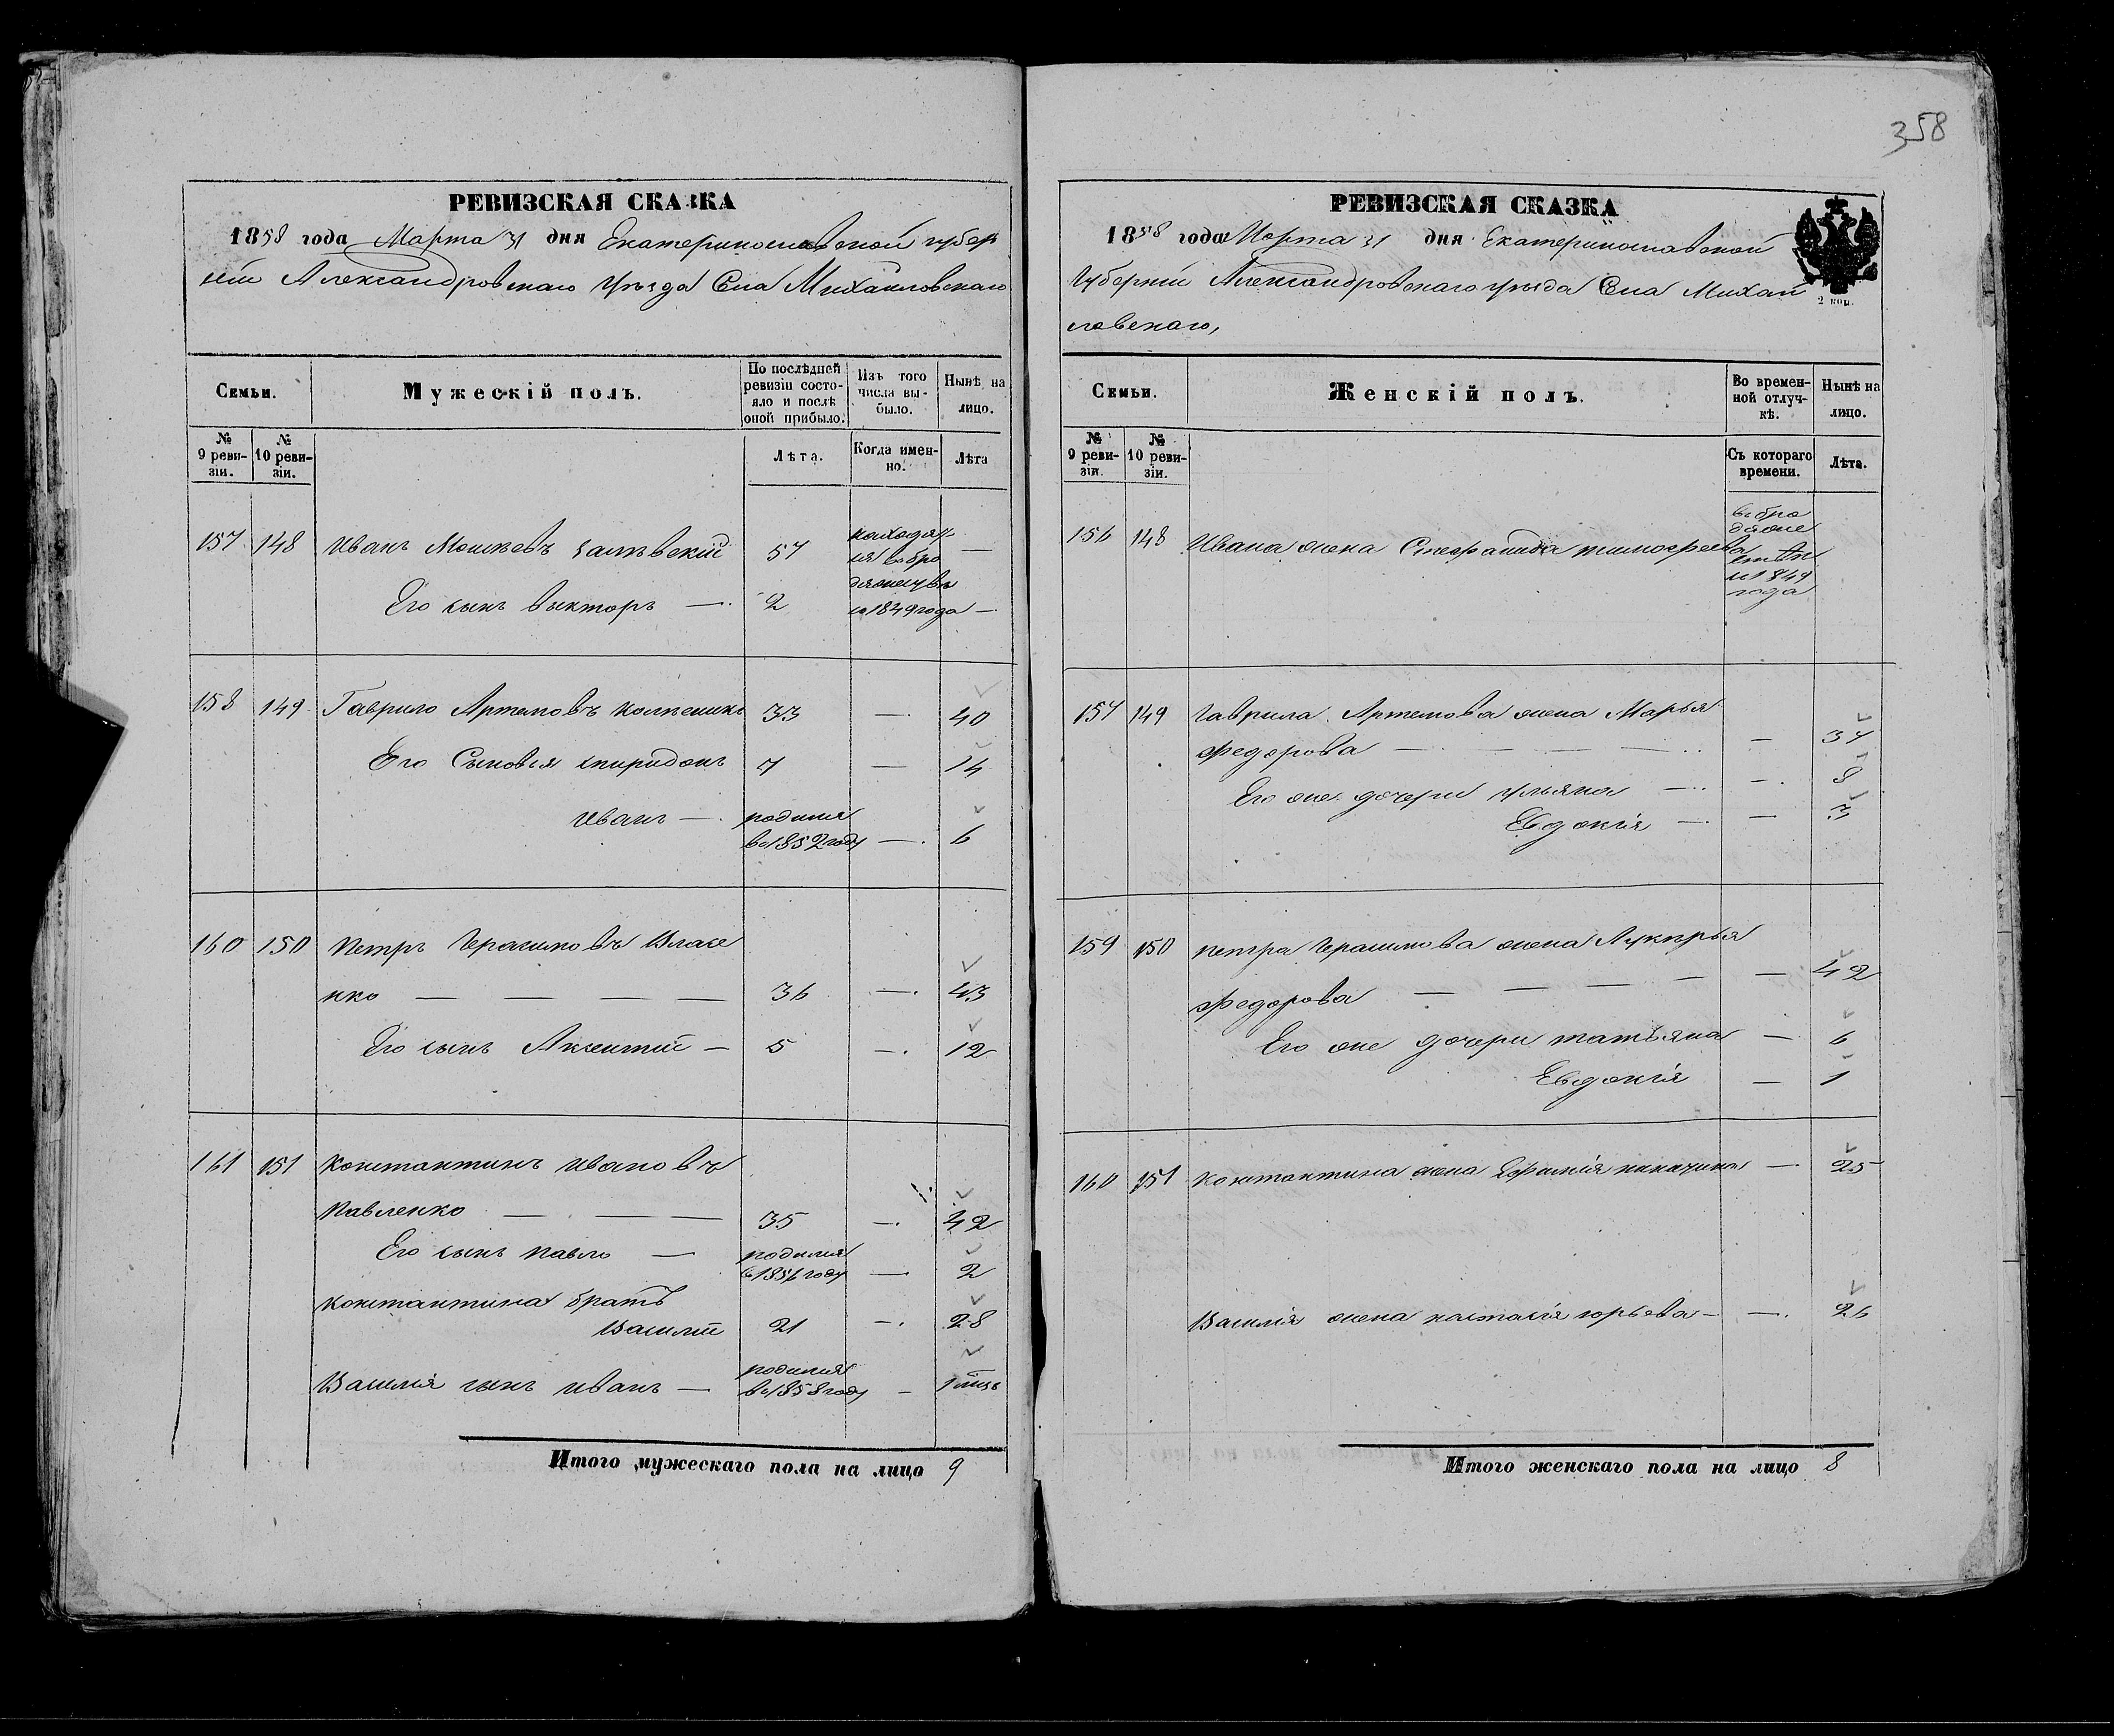 358
РЕВИЗСКАЯ СКАЗКА
1858 года Марта 31 дня Екатеринославской губер
ніи Александровскаго уѣзда Села Михайловскаго
Семьи.
Мужескій полъ.
По послѣдней ревизіи состояло и послѣ оной прибыло.
Изъ того числа выбыло.
Нынѣ на лицо.
№ 9 ревизіи.
№ 10 ревизіи.
Лѣта.
Когда именно.
Лѣта
157 148 Иванъ 57 —
Его сынъ Викторъ — 2 съ 1849 года —
158 149 Гаврило Артемовъ 33 — 40
Его Сыновья Спиридонъ 7 — 14
Иванъ — родился
въ 1852 году — 6
160 150 Петръ Герасимовъ Власе
нко — — — — 36 — 43
Его сынъ Аксентій — 5 — 12
161 151 Константинъ Ивановъ
Павленко — — — 35 — 42
Его сынъ Павло — родился
въ 1856 году — 2
Константина братъ
Василій 21 — 28
Василія сынъ Иванъ — родился
въ 1858 году —
Итого мужескаго пола на лицо 9
РЕВИЗСКАЯ СКАЗКА
1858 года Марта 31 дня Екатеринославской
Губерніи Александровскаго уѣзда Села Михай
ловскаго,
2 коп.
Семьи.
Женскій полъ.
Во временной отлучкѣ.
Нынѣ на лицо.
№ 9 ревизіи.
№ 10 ревизіи.
Съ котораго времени.
Лѣта.
156 148 Ивана жена Стефанида Тимофеева
съ 1849
года
157 149 Гаврила Артемова жена Марья
Федорова — — — — 37
Его же дочери Ульяна — — 8
Евдокія — — 3
159 150 Петра Герасимова жена Лукирья
Федорова — — — — — 42
Его же дочери Татьяна — 6
Евдокія — 1
160 151 Константина жена — 25
Василія жена Наталія Юрьева — — 26
Итого женскаго пола на лицо 8